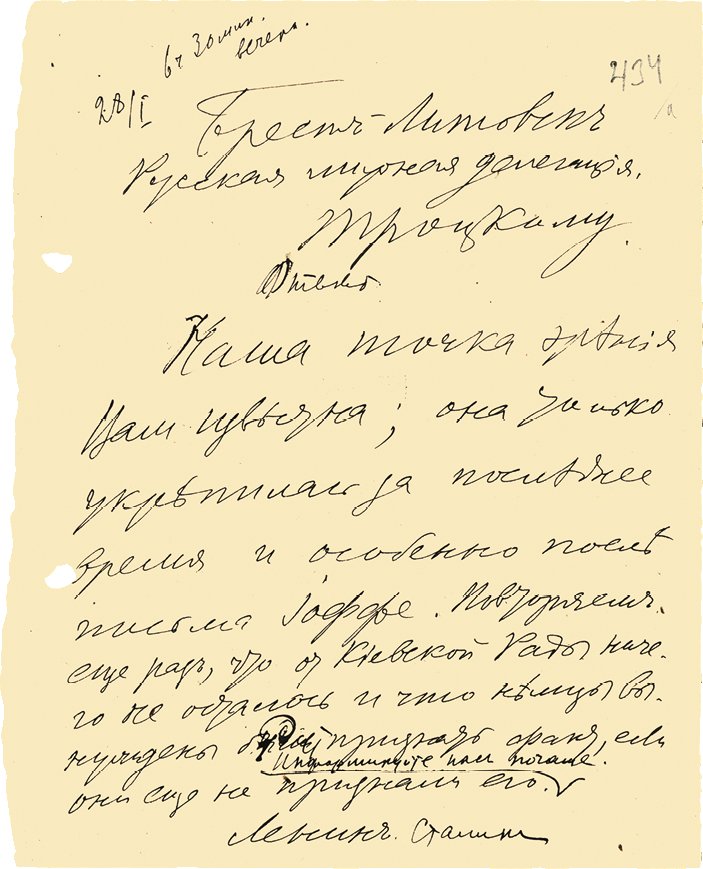 6 ч 30 мин.
вечера.
28/I
434
а
Брестъ-Литовскъ
Русская мирная делегація.
Троцкому.
Отвѣтъ
Наша точка зрѣнія
Вам извѣстна; она только
укрѣпилась за послѣднее
время и особенно послѣ
письма Іоффе. Повторяем
еще разъ, что от Кіевской Рады ниче-
го не осталось и что нѣмцы вы-
нуждены будут признать факт, если
Информируйте нас почаще.
они еще не признали его.
Ленинъ. Сталин